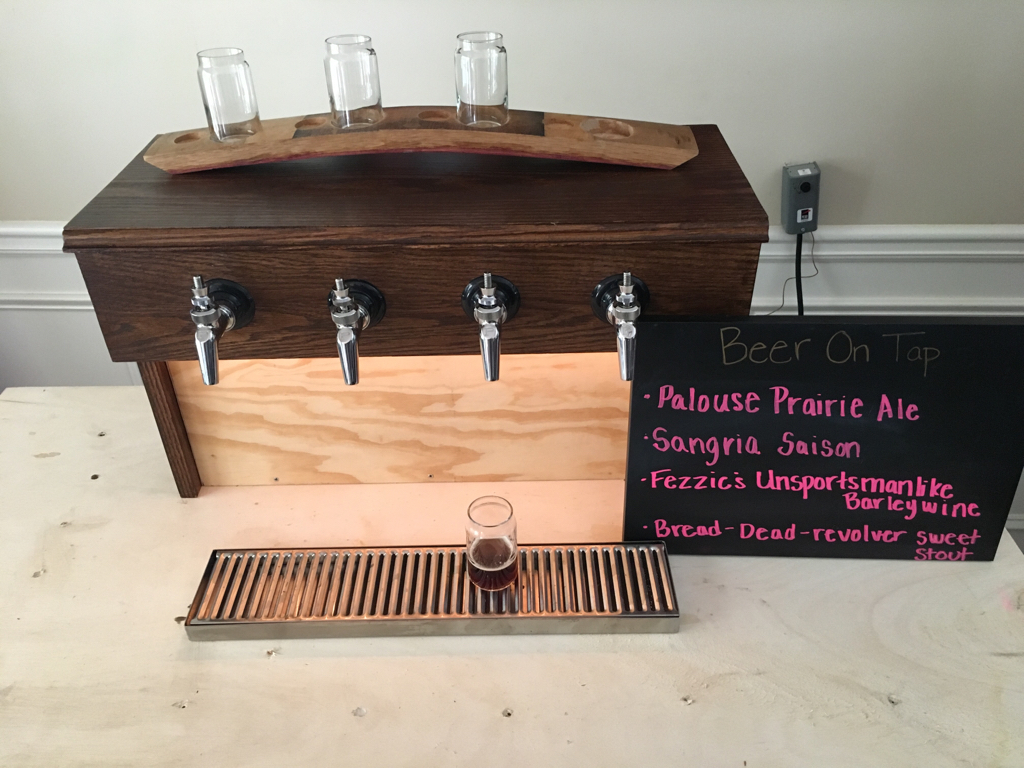 Beer On Tap
· Palouse Prairie Ale
· Sangria Saison
· Fezzic's Unsportsmanlike
Barleywine
· Bread-Dead-revolver sweet
stout